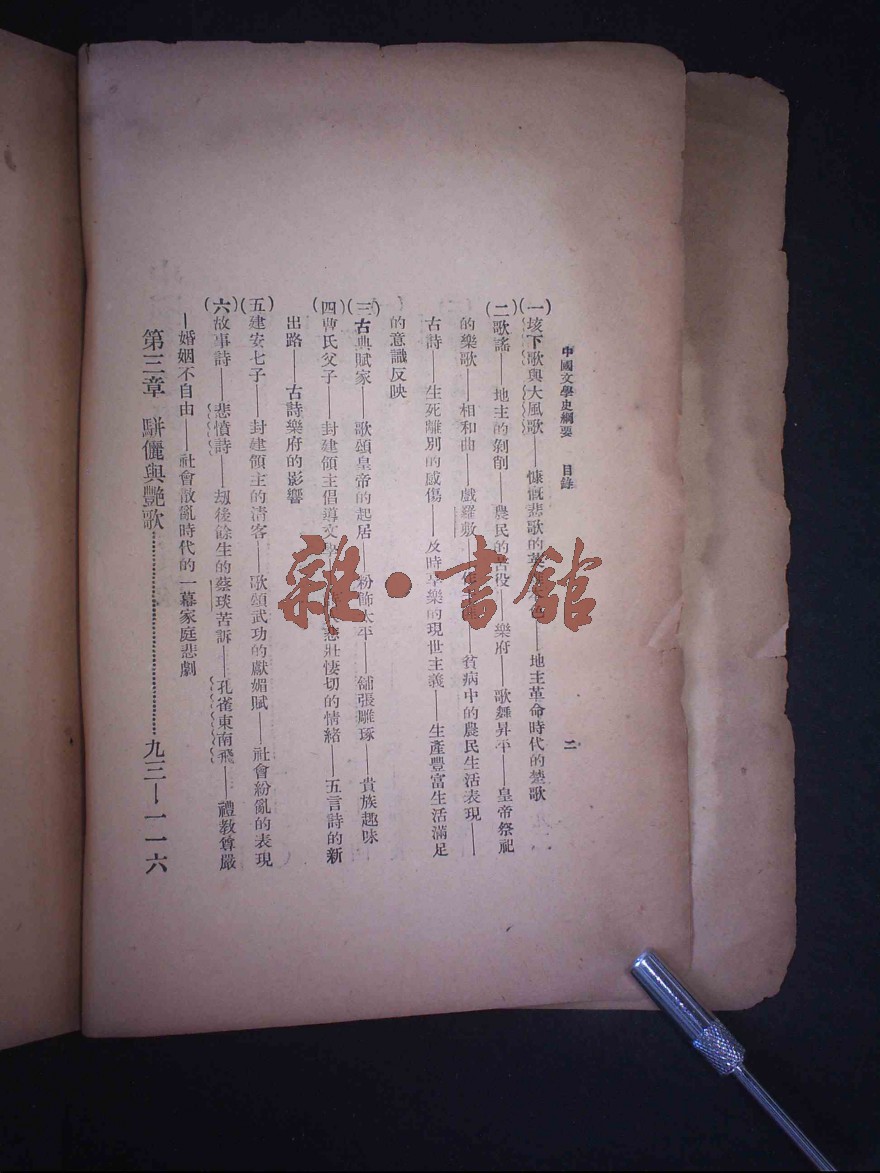 中國文學史綱要 目錄 二
(一)垓下歌與大風歌——慷慨悲歌的英——地主革命時代的楚歌
(二)歌謠——地主的剝削——農民的苦役——樂府——歌舞昇平——皇帝祭祀
的樂歌——相和曲——戲羅敷——貧病中的農民生活表現——
古詩——生死離別的感傷——及時享樂的現世主義——生產豐富生活滿足
的意識反映
(三)古典賦家——歌頌皇帝的起居——粉飾太平——舖張雕琢——貴族趣味
(四)曹氏父子——封建領主倡導文學——悲壯悽切的情緒——五言詩的新
出路——古詩樂府的影響
(五)建安七子——封建領主的清客——歌頌武功的獻媚賦——社會紛亂的表現
(六)故事詩——悲憤詩——劫後餘生的蔡琰苦訴——孔雀東南飛——禮教尊嚴
—婚姻不自由——社會散亂時代的一幕家庭悲劇
第三章 駢儷與艷歌…………九三—一一六
雜·書館